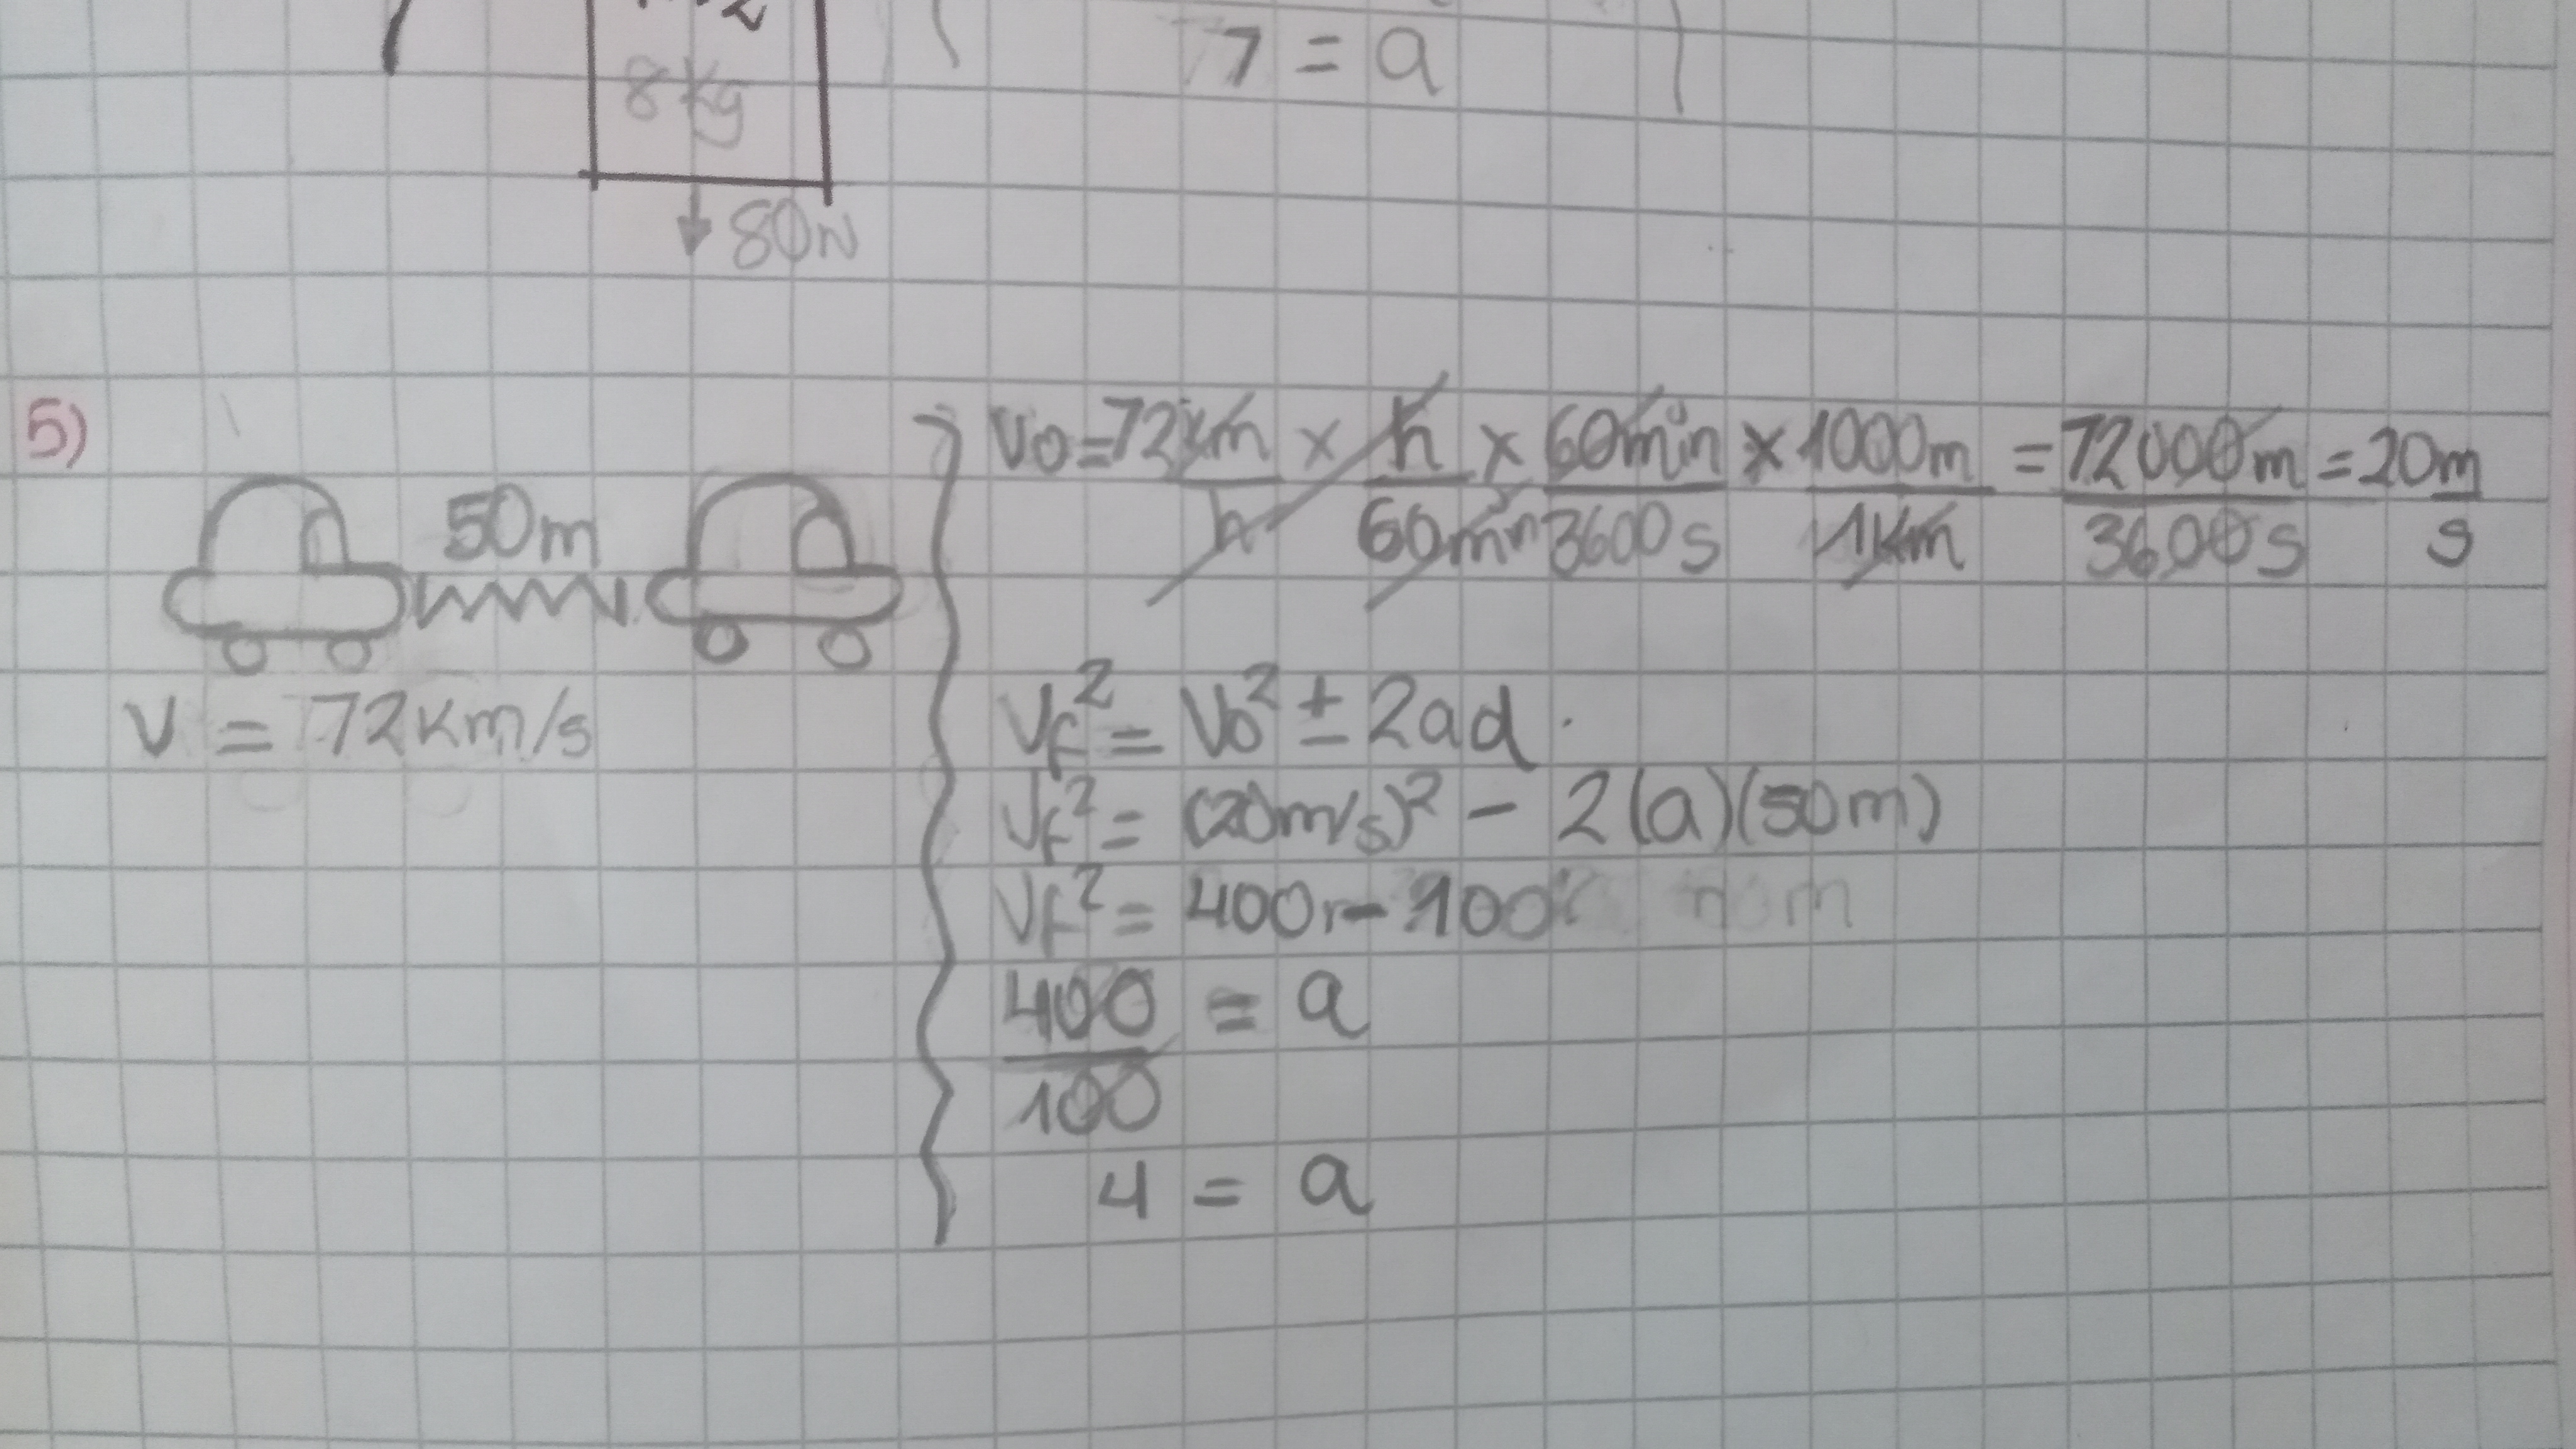 2
8kg
80N
7 = a
5)
50m
V = 72km/s
Vo = 72 km/h × h/60min × 60min/3600s × 1000m/1Km = 72000m/3600s = 20 m/s
Vf² = Vo² ± 2ad.
Vf² = (20m/s)² - 2(a)(50m)
Vf² = 400 - 100
400/100 = a
4 = a